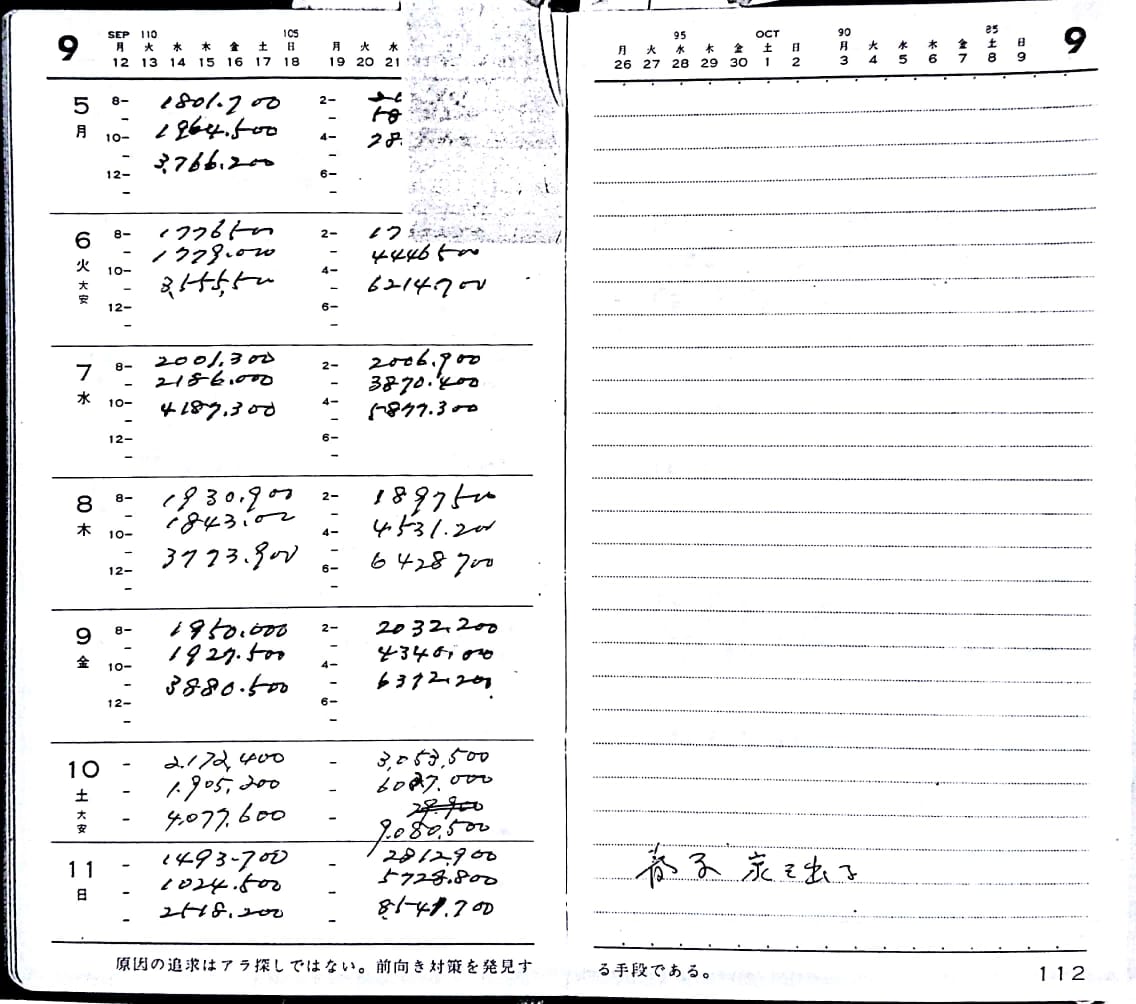 9
SEP 110 105
月 火 水 木 金 土 日 月 火 水
12 13 14 15 16 17 18 19 20 21
5 月
8- 1801.700 2-
10- 1964.500 4- 28
3,766.200
12- 6-
6 火 大安
8- 1776500 2- 17
1779.000 4446500
10- 4-
3,555,500 6214700
12- 6-
7 水
8- 2001.300 2- 2006.900
2186.000 3870.400
10- 4187.300 4- 5877.300
12- 6-
8 木
8- 1930.900 2- 1897500
1843.000 4531.200
10- 4-
3773.900 6428700
12- 6-
9 金
8- 1950.000 2- 2032.200
1927.500 4340.000
10- 4-
3880.500 6372.200
12- 6-
10 土 大安
- 2.172,400 - 3,053,500
- 1.905,200 - 6027.000
- 4.077.600 - 9.080.500
11 日
- 1493-700 - 2812.900
- 1024.500 - 5728.800
- 2518.200 - 8541.700
原因の追求はアラ探しではない。前向き対策を発見す
95 OCT 90 85
月 火 水 木 金 土 日 月 火 水 木 金 土 日
26 27 28 29 30 1 2 3 4 5 6 7 8 9
9
子 家を出る
る手段である。
112